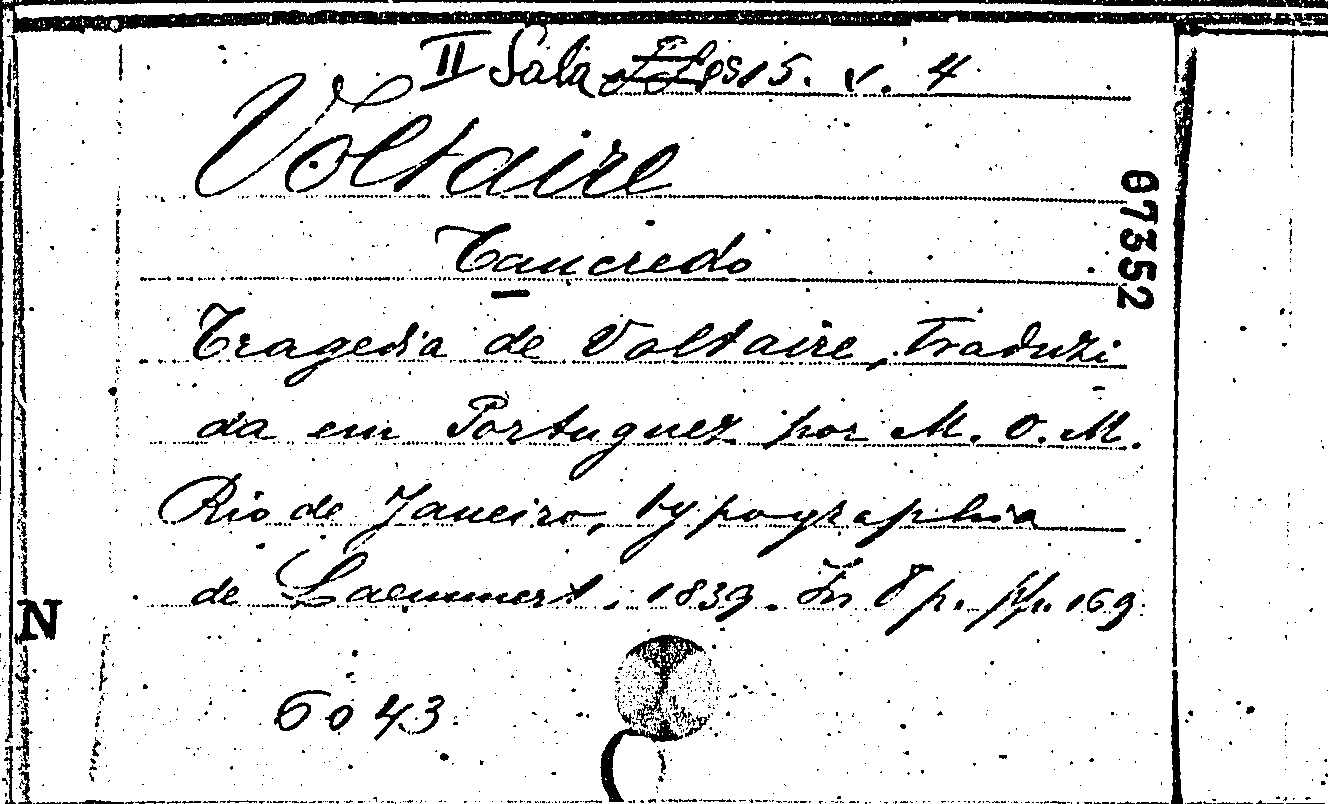 II Sala 15. v. 4
Voltaire
67352
Tancredo
Tragedia de Voltaire, Traduzi
da em Portuguez por M. O. M.
Rio de Janeiro, typographia
de Laemmert, 1839. In 8 p. pp. 169
N
6043